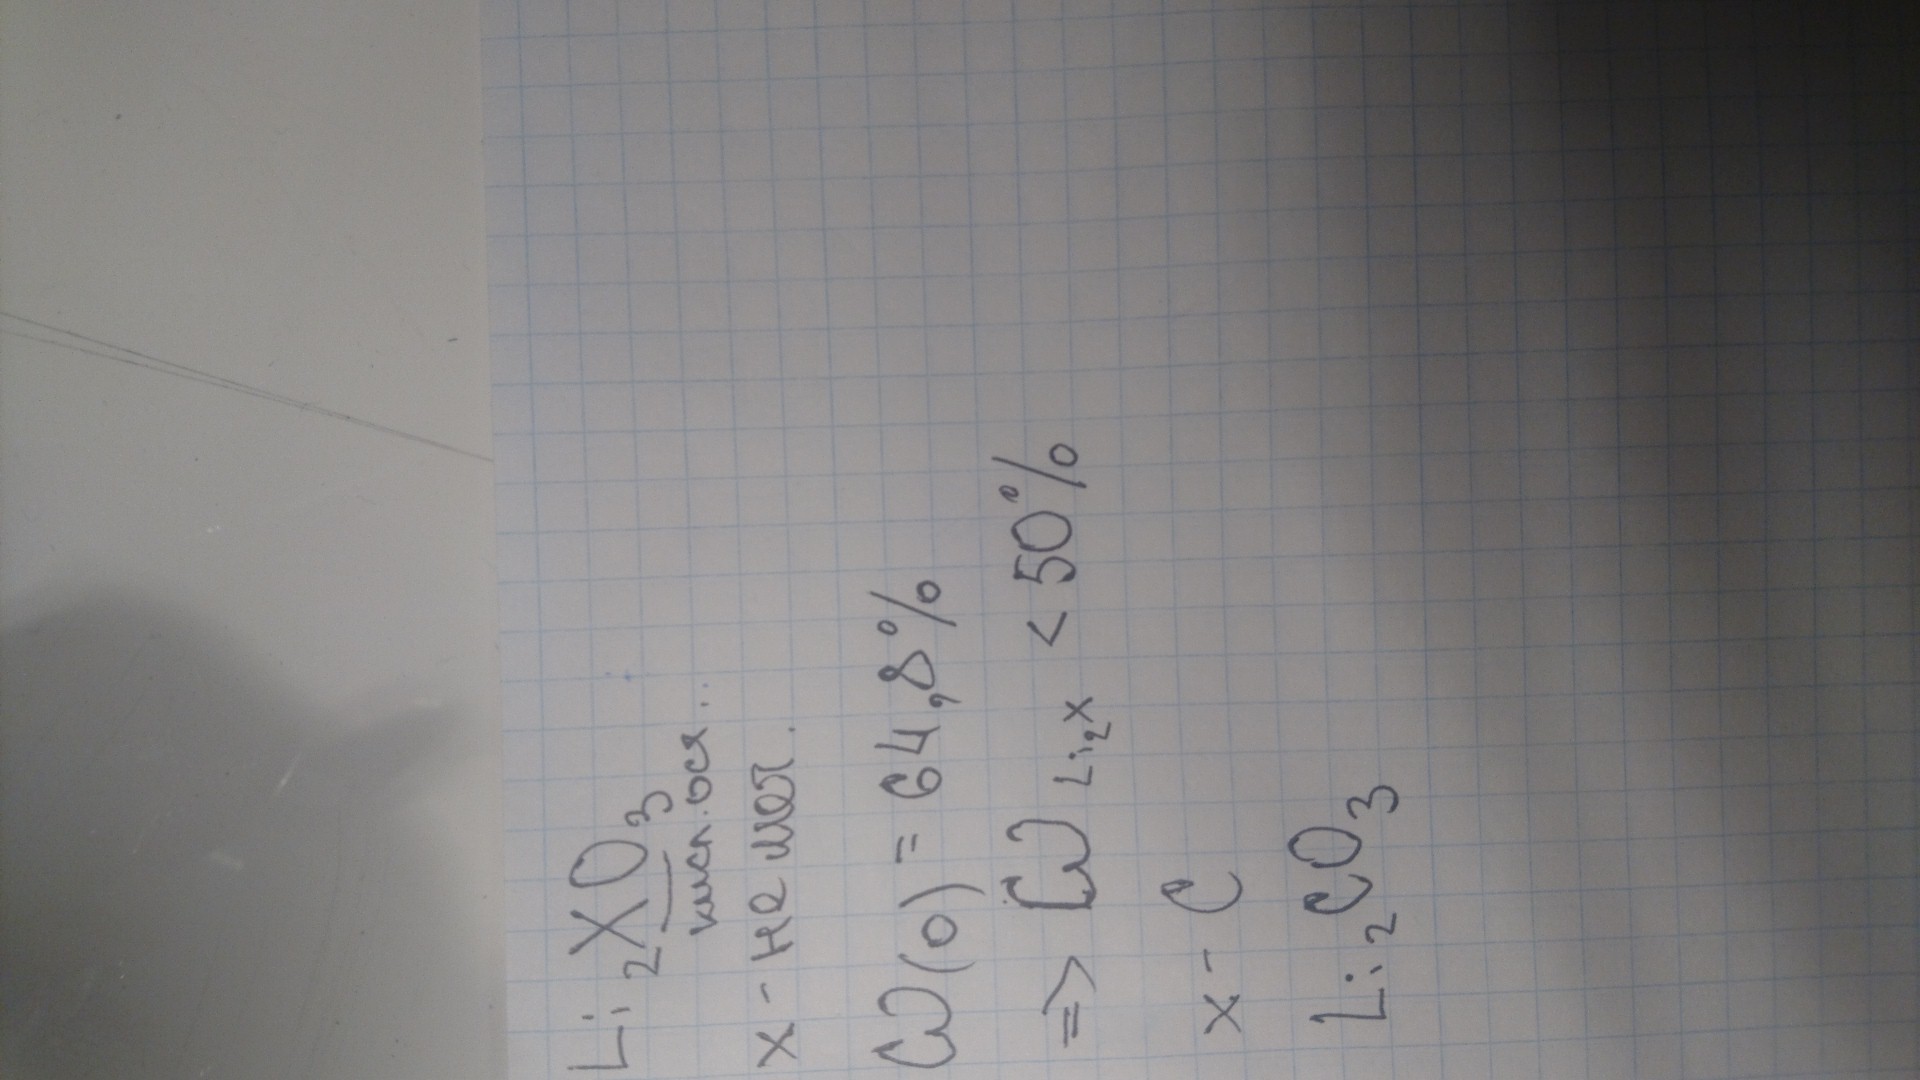 Li₂XO₃
кисл. ося..
X - не мет.
ω(O) = 64,8%
=> ω Li₂X < 50%
X - C
Li₂CO₃